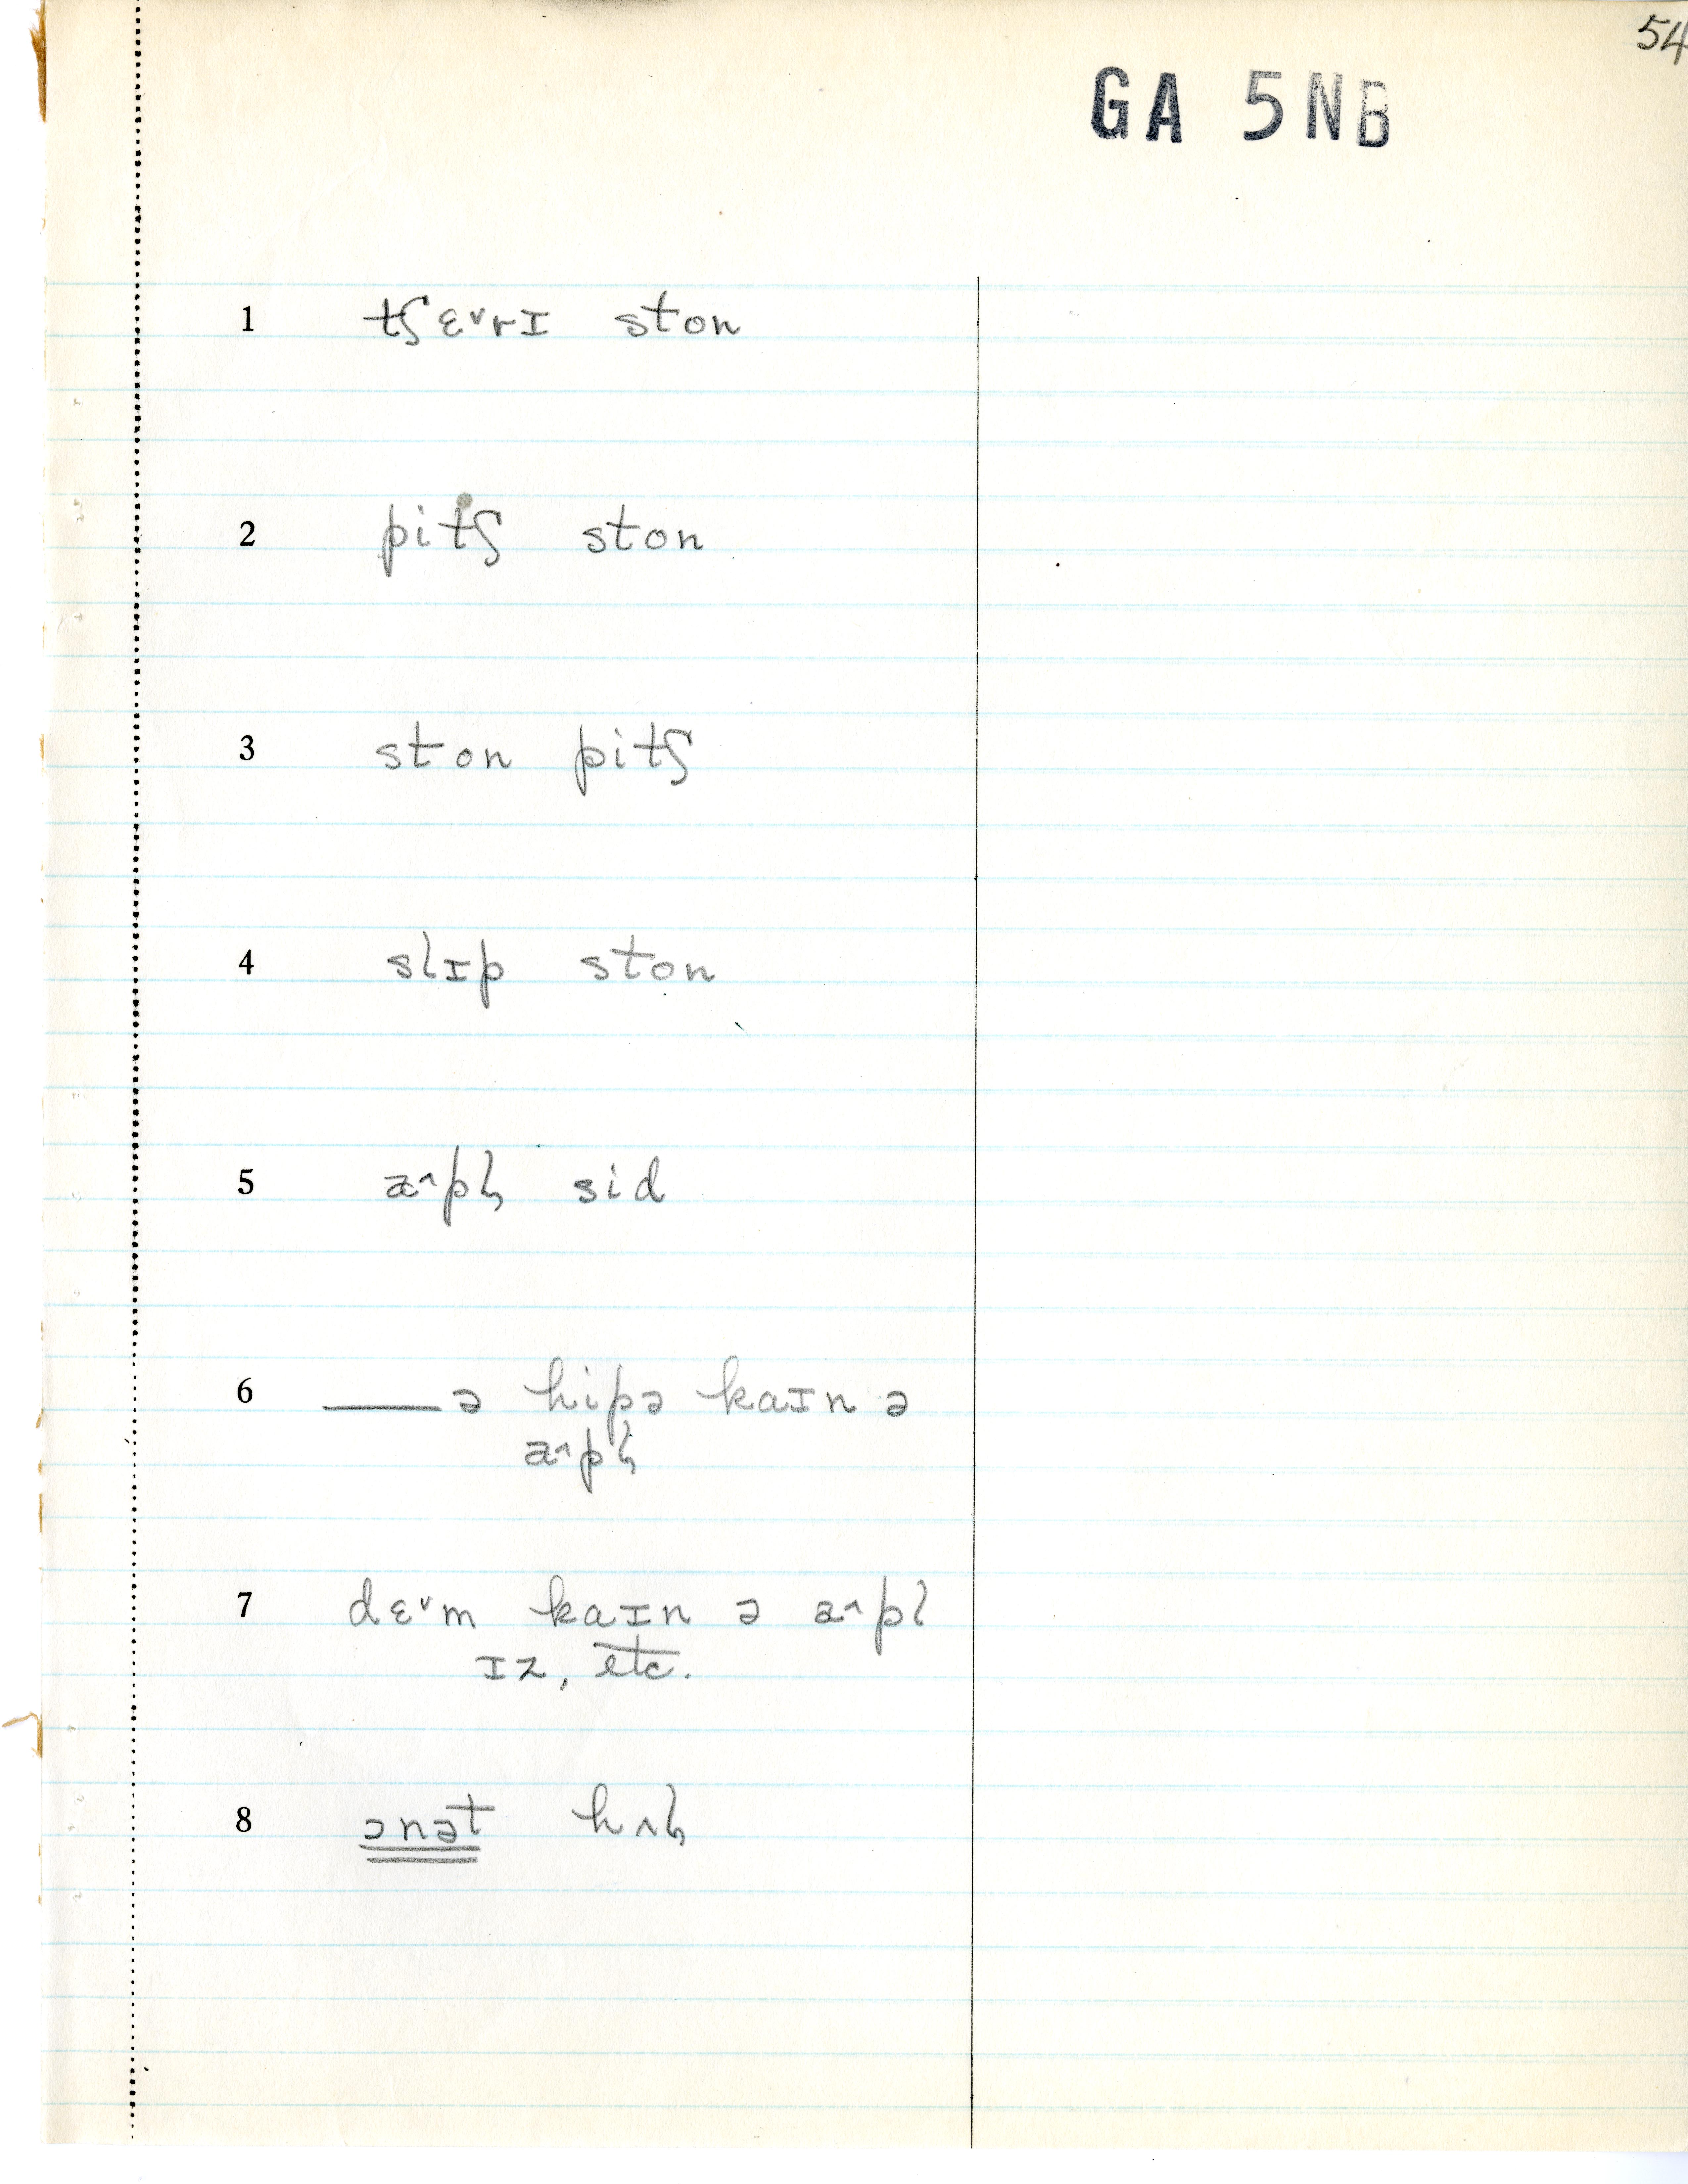 54
GA 5NB
1 tʃɛ˅rɪ ston
2 pitʃ ston
3 ston pitʃ
4 slɪp ston
5 æ˄pl̩ sid
6 ——ə hipə kaɪn ə
æ˄pl̩
7 dɛ˅m kaɪn ə æ˄pl
ɪz, etc.
8 ɔnət hʌl̩